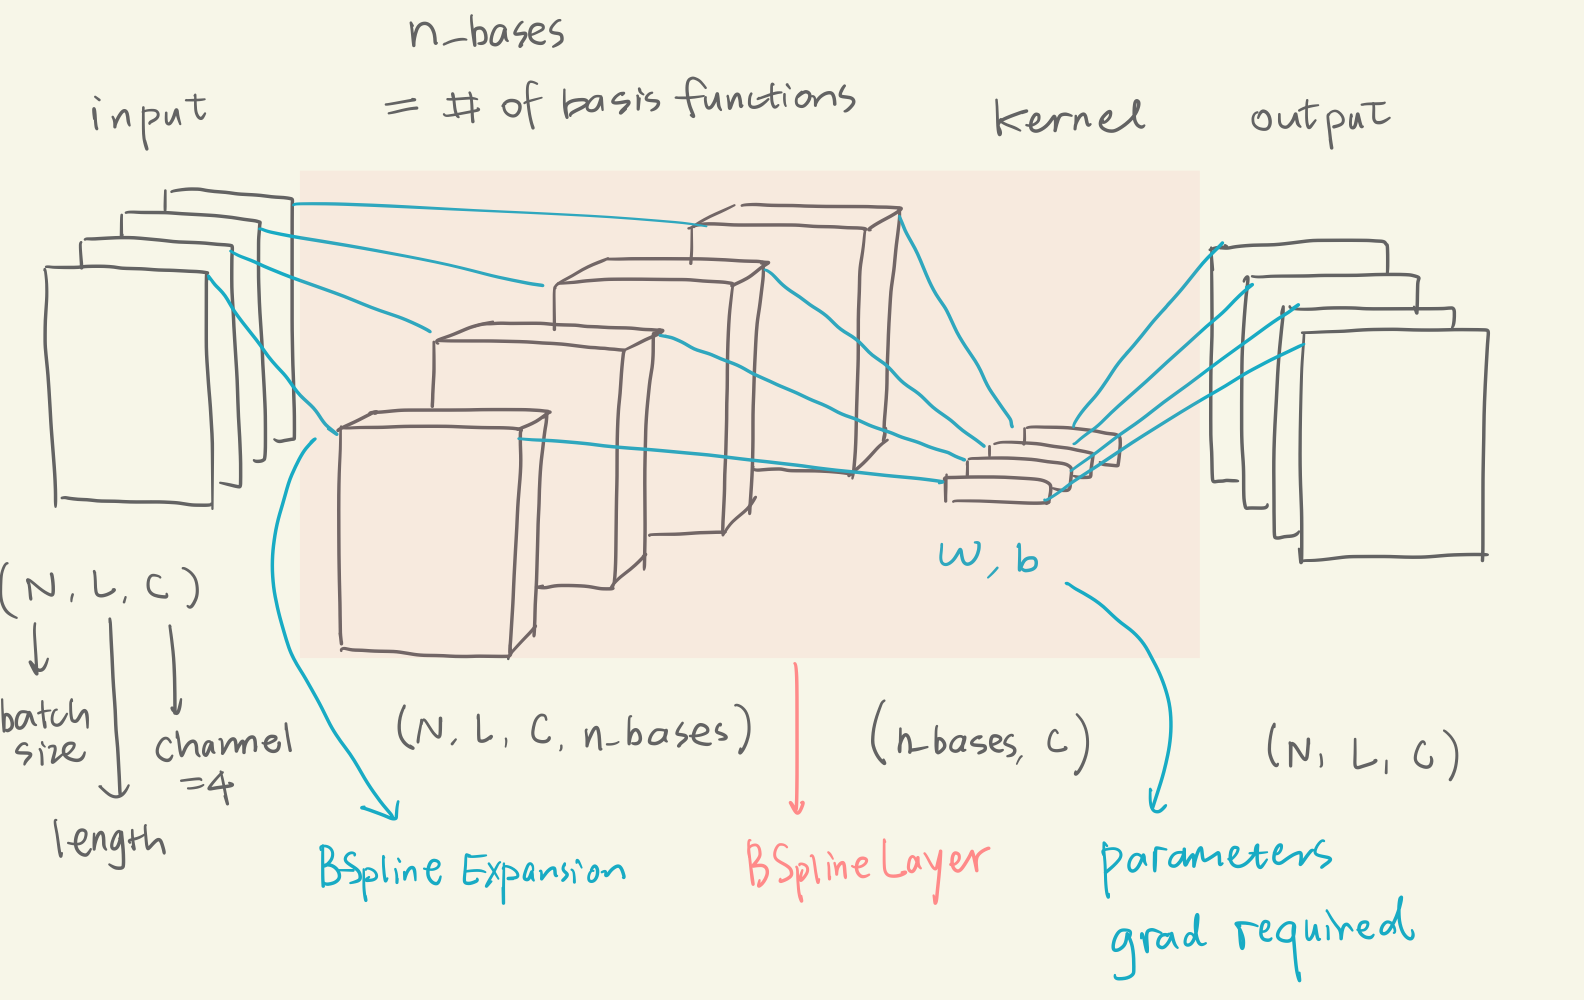 n_bases
= # of basis functions
input
kernel
output
(N, L, C)
batch
size
channel
=4
length
(N, L, C, n_bases)
w, b
(n_bases, C)
(N, L, C)
BSpline Expansion
BSplineLayer
parameters
grad required